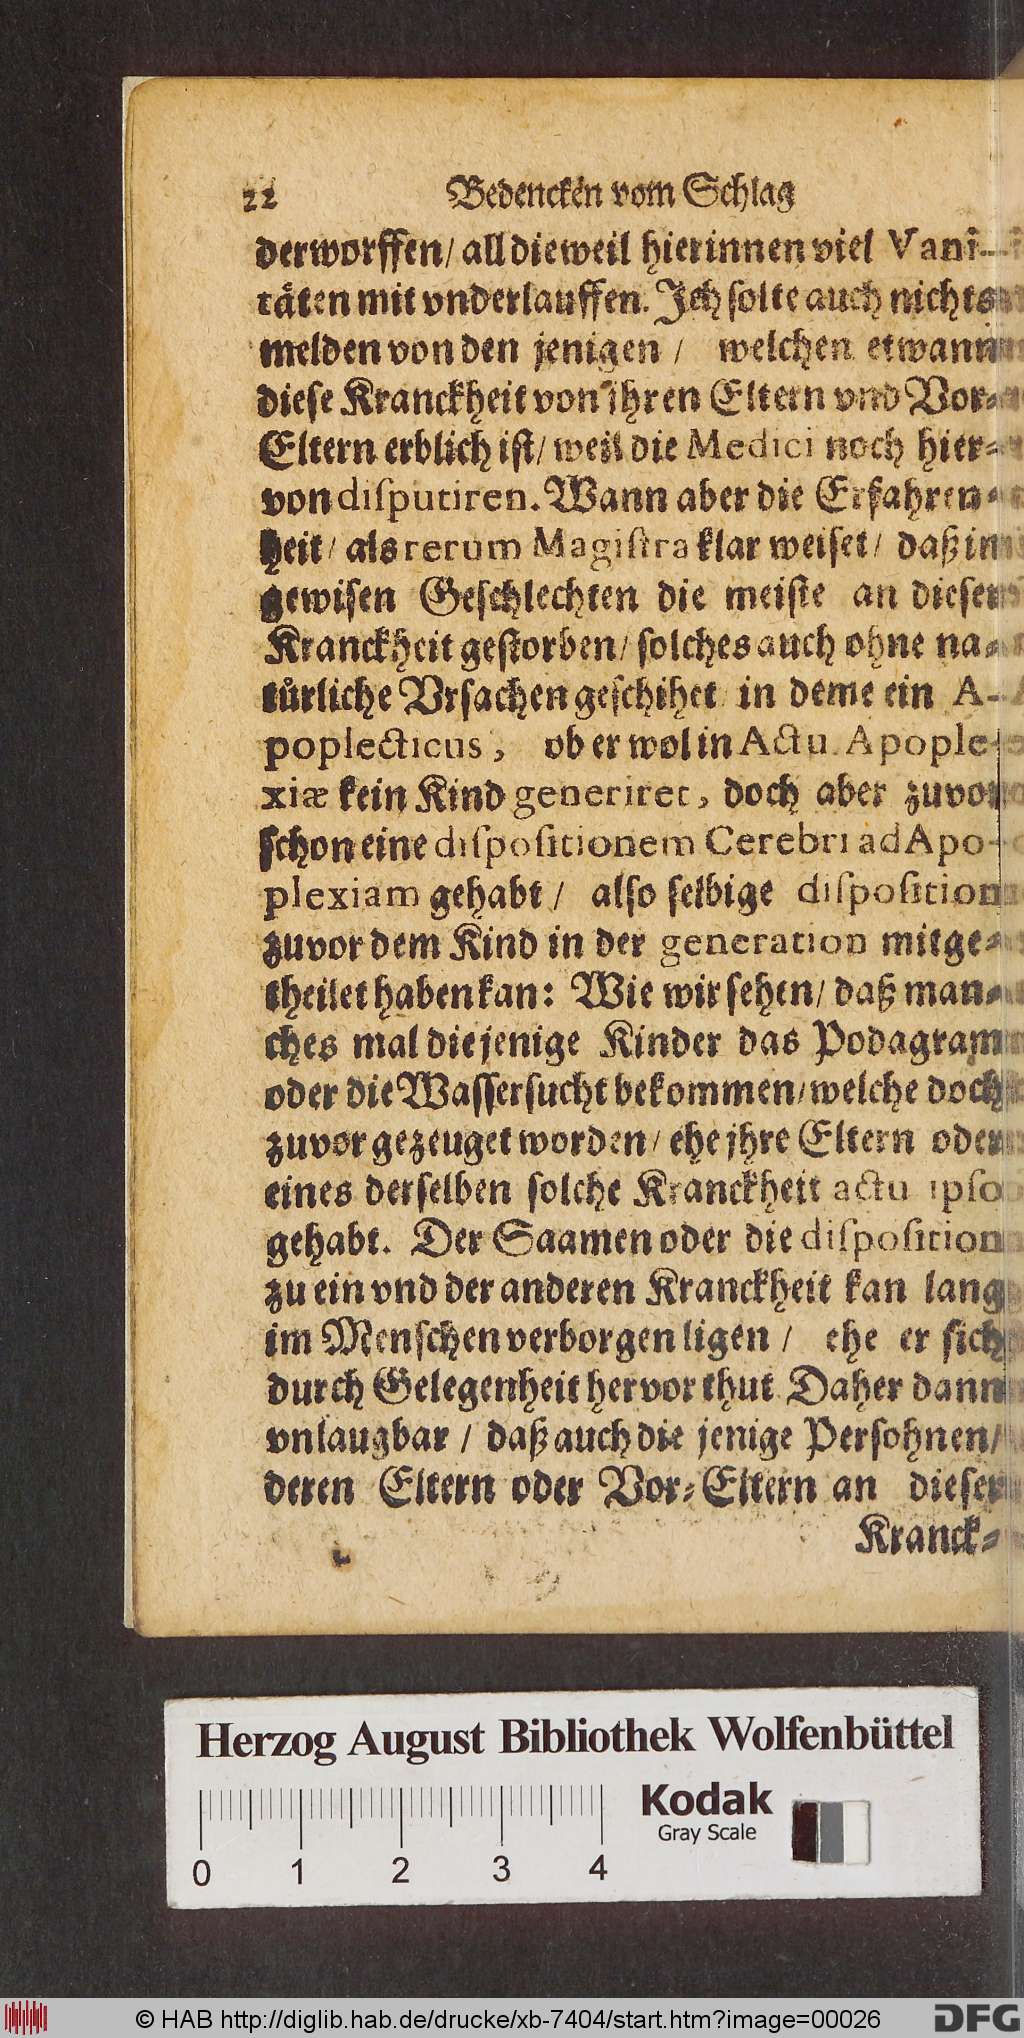 22 Bedencken vom Schlag
derworffen / alldieweil hierinnen viel Vani-
täten mit vnderlauffen. Jch solte auch nichts
melden von den jenigen / welchen etwann
diese Kranckheit von ihren Eltern vnd Vor-
Eltern erblich ist / weil die Medici noch hier-
von disputiren. Wann aber die Erfahren-
heit / als rerum Magistra klar weiset / daß in
gewisen Geschlechten die meiste an dieser
Kranckheit gestorben / solches auch ohne na-
tůrliche Vrsachen geschihet in deme ein A-
poplecticus, ob er wol in Actu Apople-
xiæ kein Kind generiret, doch aber zuvor
schon eine dispositionem Cerebri ad Apo-
plexiam gehabt / also selbige disposition
zuvor dem Kind in der generation mitge-
theilet haben kan: Wie wir sehen / daß man-
ches mal diejenige Kinder das Podagram
oder die Wassersucht bekommen / welche doch
zuvor gezeuget worden / ehe jhre Eltern oder
eines derselben solche Kranckheit actu ipso
gehabt. Der Saamen oder die disposition
zu ein vnd der anderen Kranckheit kan lang
im Menschen verborgen ligen / ehe er sich
durch Gelegenheit hervor thut Daher dann
vnlaugbar / daß auch die jenige Persohnen /
deren Eltern oder Vor-Eltern an dieser
Kranck-
Herzog August Bibliothek Wolfenbüttel
Kodak
Gray Scale
0 1 2 3 4
© HAB http://diglib.hab.de/drucke/xb-7404/start.htm?image=00026
DFG